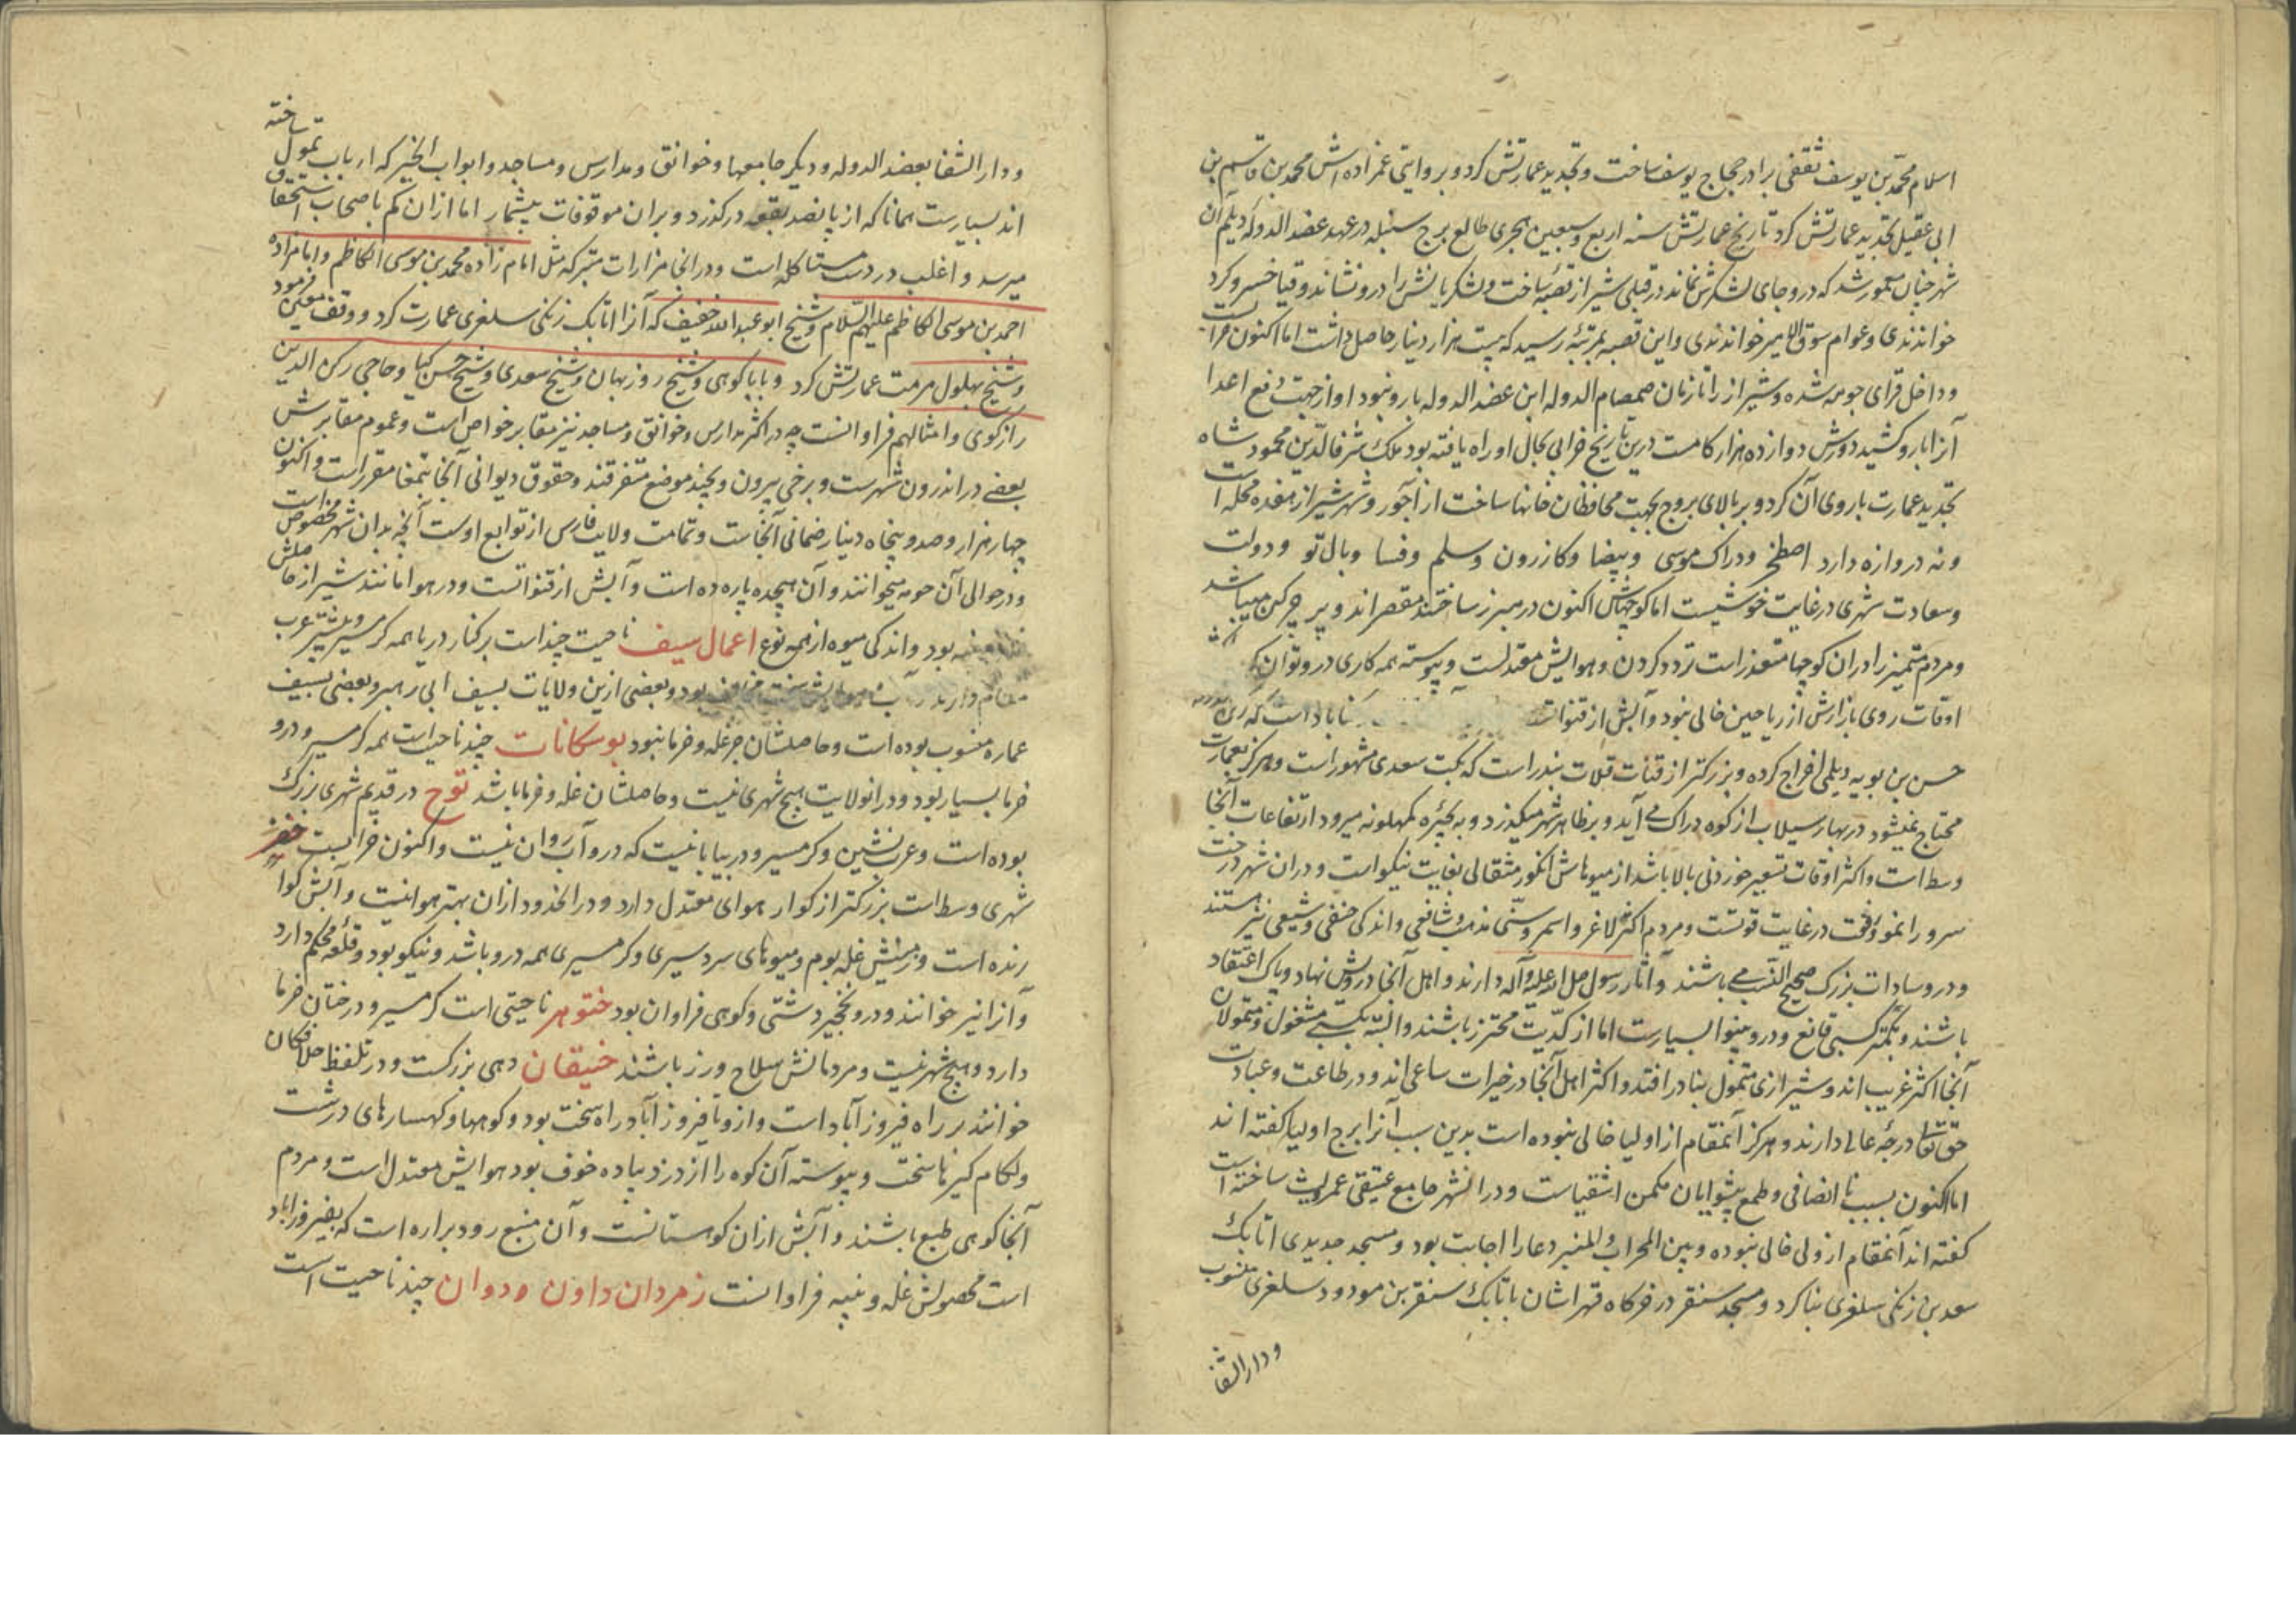 اسلام محمد بن یوسف ثقفی برادر حجاج یوسف ساخت و تجدید عمارتش کرد و بروایتی عمزاده اش محمد بن قاسم بن
ابی عقیل تجدید عمارتش کرد تاریخ عمارتش سنه اربع و سبعین هجری طالع برج سنبله در عهد عضد الدوله دیلم آن
شهر چنان معمور شد که درو جای لشکرش نماند در قبلی شیراز قصبه ساخت و لشکریانش را درو نشاند و فنا خسرو کرد
خواندندی و عوام سوق الامیر خواندندی و این قصبه بمرتبه رسید که بیست هزار دینار حاصل داشت اما اکنون خرابست
و داخل قرای حومه شده و شیراز را تا زمان صمصام الدوله ابن عضد الدوله بارو نبود او از جهت دفع اعدا
آنرا بارو کشید دورش دوازده هزار کامست درین تاریخ خرابی بحال او راه یافته بود ملک شرف الدین محمود شاه
تجدید عمارت باروی آن کرد و بر بالای بروج بجهت محافظان خانها ساخت از آجور و شهر شیراز هفده محله است
و نه دروازه دارد اصطخر و دراک موسی و بیضا و کازرون و سلم و فسا و باب نو و دولت
و سعادت شهری در غایت خوشیست اما کوچهاش اکنون در مبرز ساختند مقصر اند و پر چرکین میباشد
و مردم متمیز را در آن کوچها متعذر است تردد کردن و هوایش معتدلست و پیوسته همه کاری درو توان کرد
اوقات روی بازارش از ریاحین خالی نبود و آبش از قنوات
حسن بن بویه دیلمی اخراج کرده و بزرکتر از قنات قلات بندر است که بکت سعدی مشهور است و هرکز بعمارت
محتاج نمیشود در بهار سیلاب از کوه دراک می آید و بر ظاهر شهر میکذرد و به بحیره کمهلونه میرود ارتفاعات آنجا
وسط است و اکثر اوقات تسعیر خوردنی بالا باشد از میوهاش انکور مثقالی بغایت نیکو است و در ان شهر درخت
سرو را نمو و قوت در غایت قوتست و مردم اکثر لاغر و اسمر و سنی مذهب و شافعی و اندکی حنفی و شیعی نیز هستند
و درو سادات بزرک صحیح النسب می باشند و آثار رسول صلی الله علیه و آله دارند و اهل آنجا درویش نهاد و پاک اعتقاد
باشند و بکمتر کسبی قانع و درو بینوا بسیارست اما از کدیت محترز باشند و البته بکسبی مشغول و متمولان
آنجا اکثر غریب اند و شیرازی متمول بنادر افتد و اکثر اهل آنجا در خیرات ساعی اند و در طاعت و عبادت
حق تعالی درجه عالی دارند و هرکز آنمقام از اولیا خالی نبوده است بدین سبب آنرا برج اولیا کفته اند
اما اکنون بسبب نا انصافی و طمع پیشوایان مکمن اشقیاست و در انشهر جامع عتیقی عمرو لیث ساخته است
کفته اند آنمقام از ولی خالی نبوده و بین المحراب و المنبر دعا را اجابت بود و مسجد جدیدی اتابک
سعد بن زنکی سلغری بنا کرد و مسجد سنقر در خرکاه تراشان باتابک سنقر بن مودود سلغری منسوب
و دار الشفا
و دار الشفا بعضد الدوله و دیکر جامعها و خوانق و مدارس و مساجد و ابواب الخیر که ارباب تمول ساخته
اند بسیارست همانا که از پانصد بقعه درکذرد و بران موقوفات بیشمار اما از آن کم باصحاب استحقاق
میرسد و اغلب در دست مستاکله است و در آنجا مزارات متبرکه مثل امام زاده محمد بن موسی الکاظم و امامزاده
احمد بن موسی الکاظم علیهم السلام و شیخ ابو عبدالله خفیف که آنرا اتابک زنکی سلغری عمارت کرد و وقف معین فرمود
و شیخ بهلول مرمت عمارتش کرد و بابا کوهی و شیخ روزبهان و شیخ سعدی و شیخ حسن کیا و حاجی رکن الدین
راز کوی و امثالهم فراوانست چه در اکثر مدارس و خوانق و مساجد نیز مقابر خواص است و عموم مقابرش
بعضی در اندرون شهرست و برخی بیرون و بچند موضع متفرقند و حقوق دیوانی آنجا بتمغا مقرر است و اکنون
چهار هزار و صد و پنجاه دینار ضمانی آنجاست و تمامت ولایت فارس از توابع اوست آنچه بدان شهر مخصوص است
و در حوالی آن حومه میخوانند و آن هیجده پاره ده است و آبش از قنواتست و در هوا مانند شیراز حاصلش
بود و اندکی میوه از همه نوع اعمال سیف ناحیت چند است بر کنار دریا همه کرمسیر و بیشتر عرب
مقام دارند بود و بعضی ازین ولایات بسیف ابی زهیر و بعضی بسیف
عماره منسوب بوده است و حاصلشان جز غله و خرما نبود بوسکانات چند ناحیت است همه کرمسیر و درو
خرما بسیار بود و در انولایت هیچ شهری نیست و حاصلشان غله و خرما باشد توج در قدیم شهری بزرک
بوده است و عرب نشین و کرمسیر و در بیابانیست که درو آب روان نیست و اکنون خرابست خفر
شهری وسط است بزرکتر از کوار هوای معتدل دارد و در انحدود از آن بهتر هوا نیست و آبش کوا
رنده است و زمینش غله بوم و میوهای سردسیری و کرمسیری همه درو باشد و نیکو بود و قلعه محکم دارد
و آنرا نیر خوانند و درو نخجیر دشتی و کوهی فراوان بود خنوهر ناحیتی است کرمسیر و درختان خرما
دارد و هیچ شهر نیست و مردمانش سلاح ورز باشند خنیقان دهی بزرکست و در تلفظ خلافکان
خوانند بر راه فیروزآباد است و ازو تا فیروز آباد راه سخت بود و کوهها و کهسارهای درشت
و لکام کیرها سخت و پیوسته آن کوه را از دزد پیاده خوف بود هوایش معتدل است و مردم
آنجا کوهی طبع باشند و آبش از آن کوهستانست و آن منبع رود براره است که بفیروزاباد
است محصولش غله و پنبه فراوانست زمردان داون ه دوان چند ناحیت است